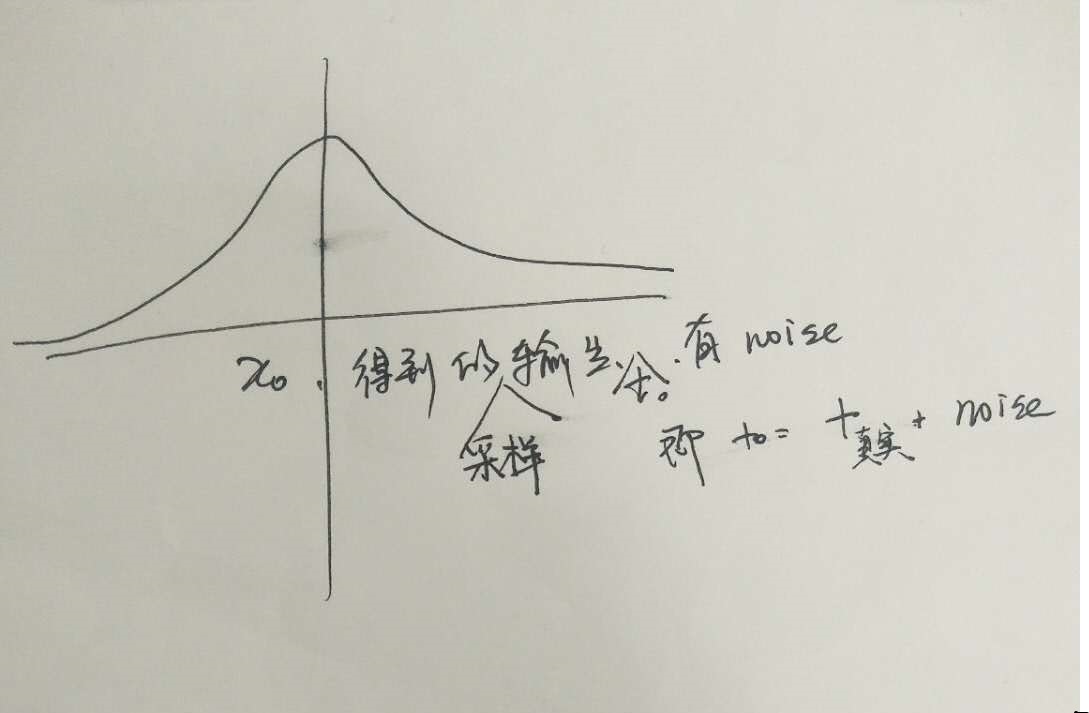 x₀. 得到的输出 t₀. 有 noise
采样
即 t₀ = t真实 + noise